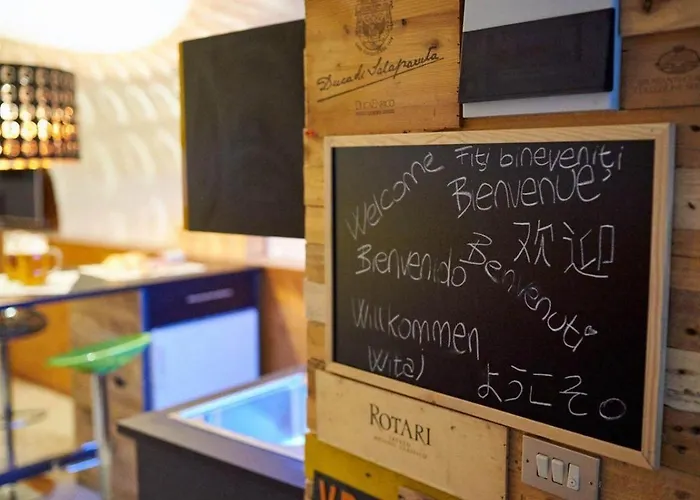 Duca di Salaparuta
Welcome
Fiți bineveniți
Bienvenue
欢迎
Bienvenido
Benvenuti
Willkommen
Witaj
ようこそ。
ROTARI